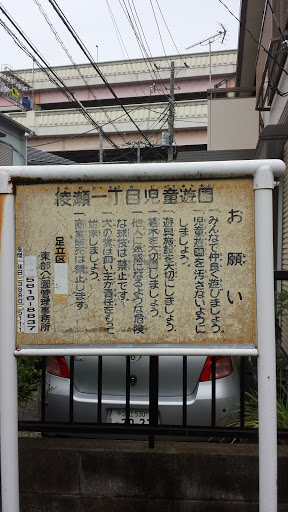 綾瀬一丁目児童遊園
お願い
みんなで仲良く遊びましょう
児童遊園を汚さないように
しましょう。
一、遊具施設を大切にしましょう
一、樹木を大切にしましょう
一、他人に迷惑になるような危険
な球技は禁止です。
一、犬の糞は飼い主が責任をもって
始末しましょう。
一、商業販売は禁止します。
足立区
東部公園管理事務所